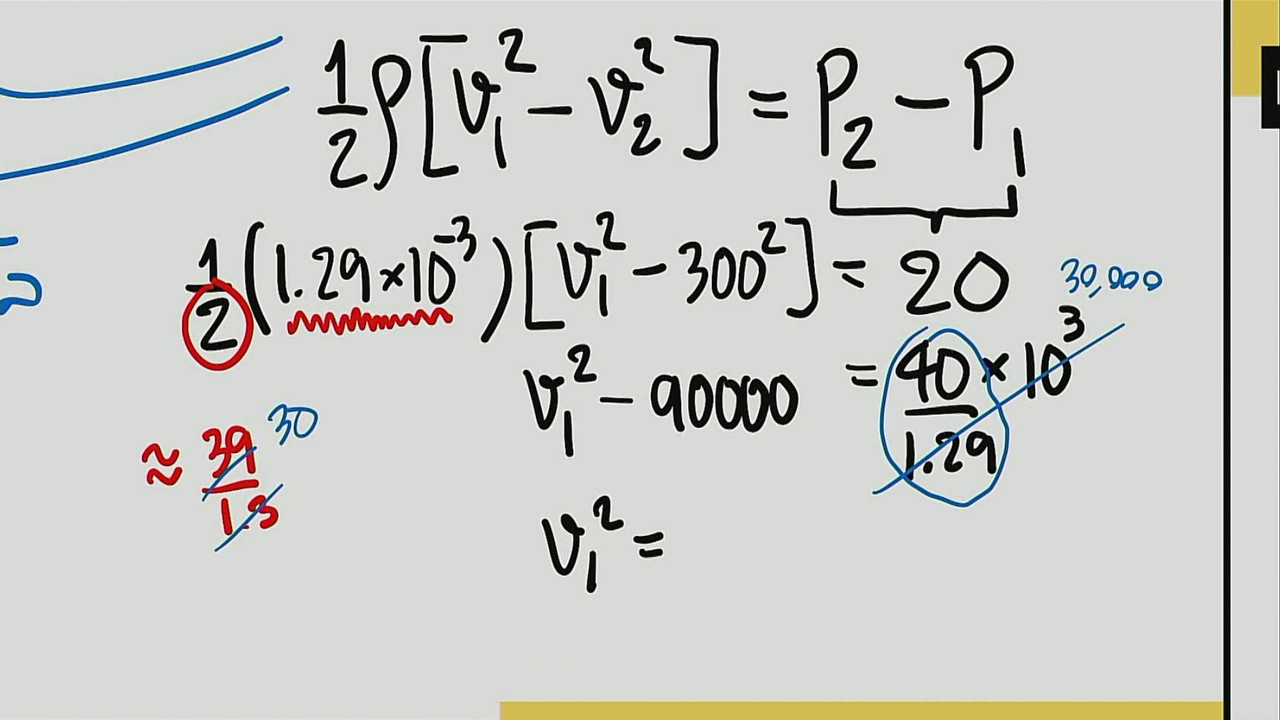 ½ρ[v₁² − v₂²] = P₂ − P₁
½(1.29×10⁻³)[v₁² − 300²] = 20
30,000
v₁² − 90000 = 40/1.29 × 10³
≈ 39/1.3 30
v₁² =